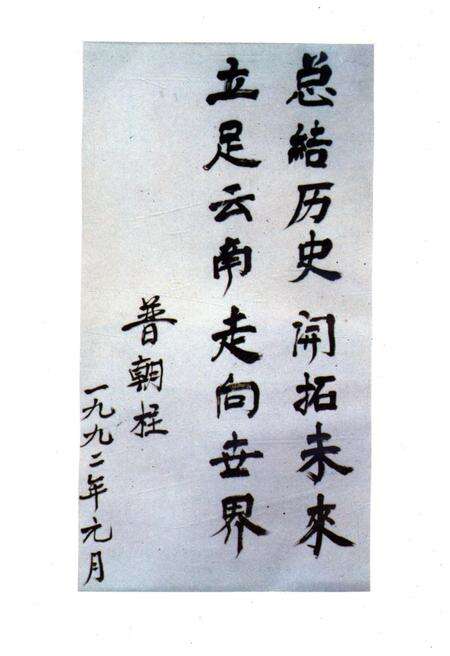 总結历史 開拓未來
立足云南走向世界
普朝柱
一九九二年元月